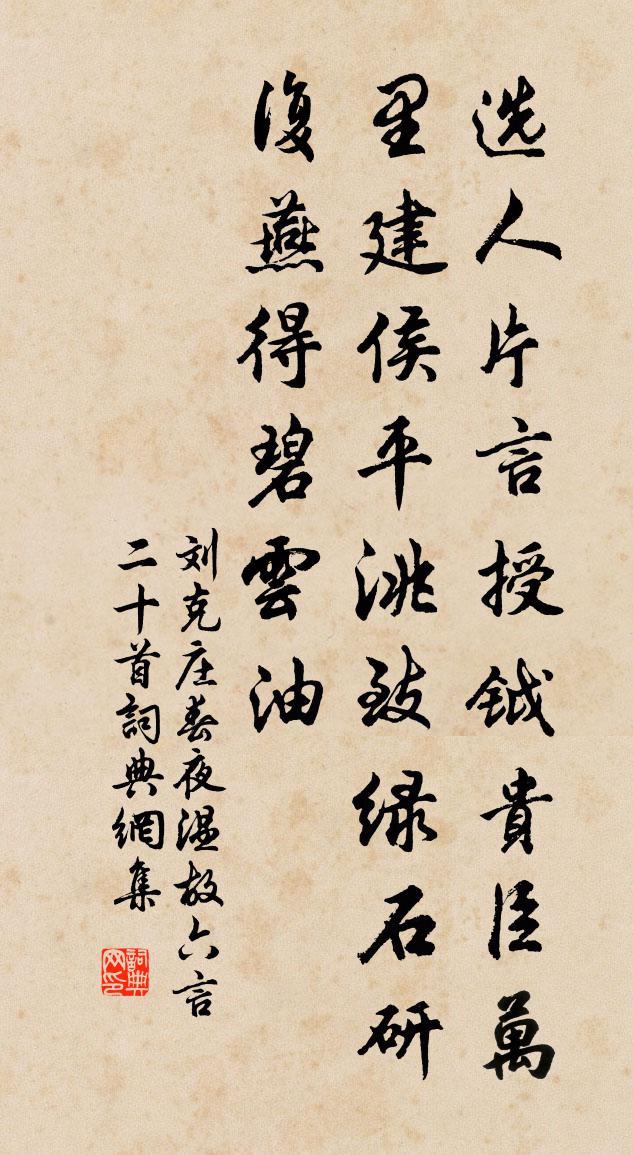 选人片言授钺貴臣萬
里建侯平洮致绿石研
復燕得碧雲油
刘克庄春夜温故六言
二十首詞典網集
詞典
网印